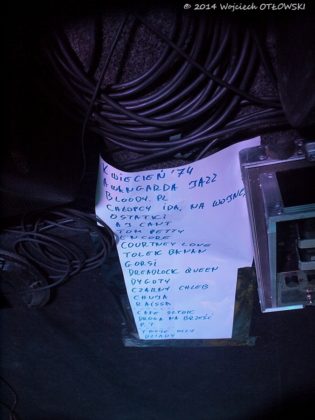 © 2014 Wojciech OTŁOWSKI
KWIECIEŃ '74
AWANGARDA JAZZ
BLOODY. PL
CHŁOPCY IDĄ NA WOJNĘ
OSTATKI
AJ CANT
TOM PETTY
ENCORE
COURTNEY LOVE
TOLEK BANAN
GORSI
DREADLOCK QUEEN
DYGOTY
CZARNY CHLEB
CHUJA
RAISSA
DROGA NA BRZEŚĆ
DZIADY